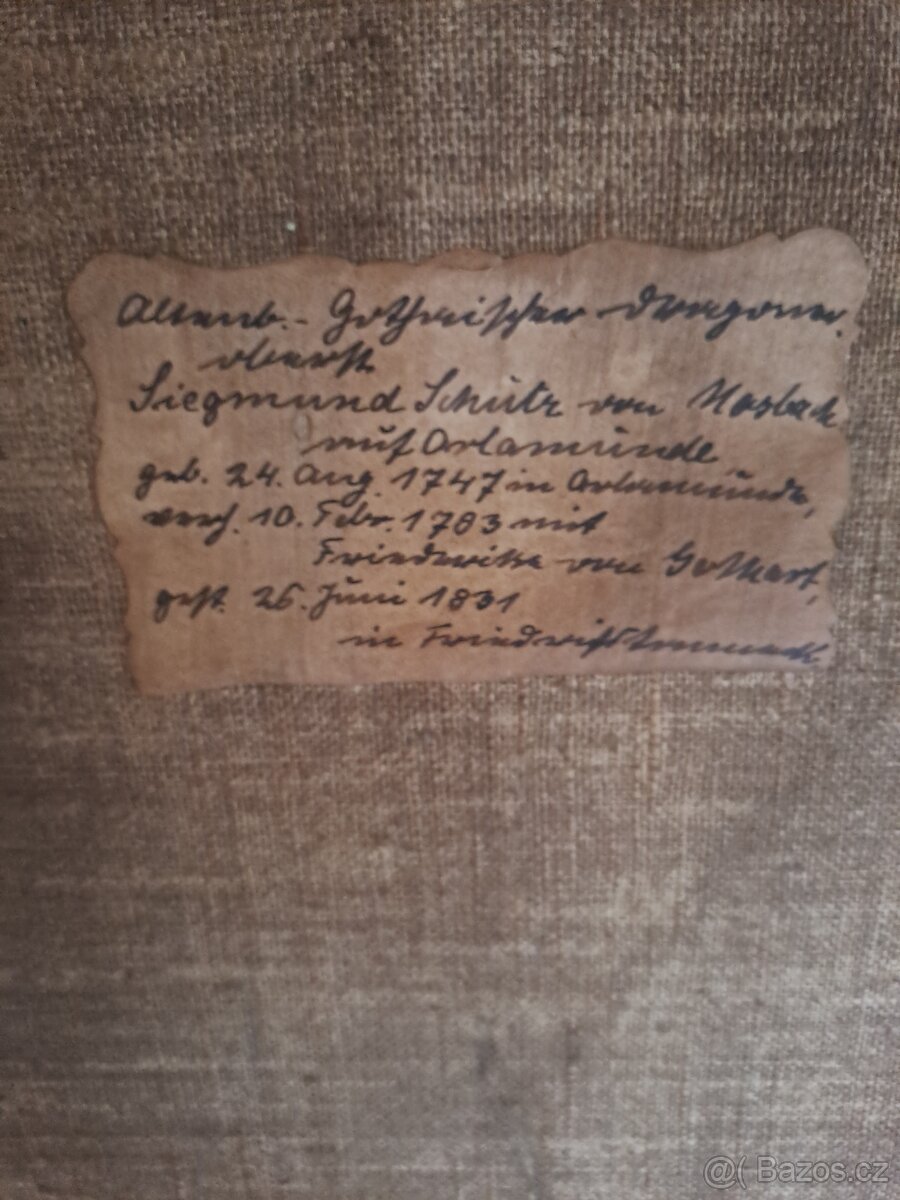 Altenb.- Gothaischer Dragoner.
oberst
Siegmund Schütz von Mosbach
auf Orlamünde
geb. 24. Aug. 1747 in Orlamünde,
verh. 10. Febr. 1783 mit
Friederike von Gothart,
gest. 26. Juni 1831
in
@( Bazos.cz